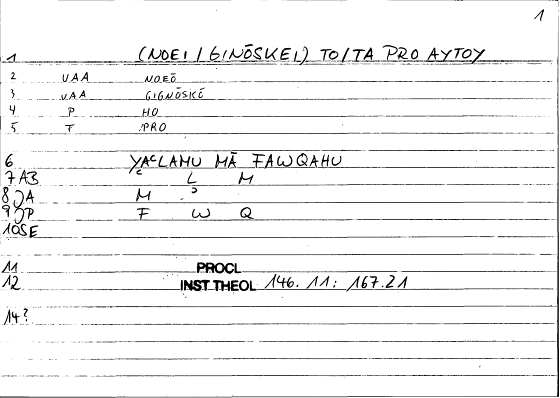 1
1 (NOEI / GINŌSKEI) TO/TA PRO AYTOY
2 VAA NOEŌ
3 VAA GIGNŌSKŌ
4 P HO
5 T PRO
6 YAᶜLAMU MĀ FAWQAHU
7 AB ᶜ L M
8 JA M ɔ
9 JP F W Q
10 SE
11 PROCL
12 INST THEOL 146. 11; 167.21
14?